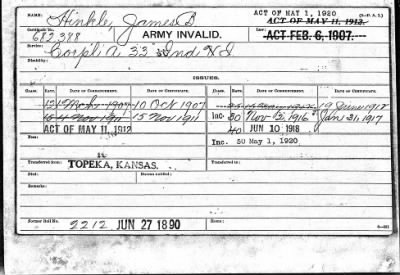 ACT OF MAY 1, 1920
Name: Hinkle, James D ACT OF MAY 11, 1912.
Certificate No. 682,388 ARMY INVALID. ACT FEB. 6, 1907.
Service: Corpl A 33 Ind V I
Disability:
ISSUES.
CLASS. DATE OF COMMENCEMENT. DATE OF CERTIFICATE. CLASS. DATE OF COMMENCEMENT. DATE OF CERTIFICATE.
12 Mch 1907 10 Oct 1907 19 June 1912
15 Nov 1911 Inc. 30 Nov 12, 1916 Jan 31, 1917
ACT OF MAY 11, 1912 40 JUN 10 1918
Inc. 50 May 1, 1920
Transferred from: TOPEKA, KANSAS. Transferred to:
Died: Bureau notified:
Remarks:
Former Roll No. 9212 JUN 27 1890 Home: